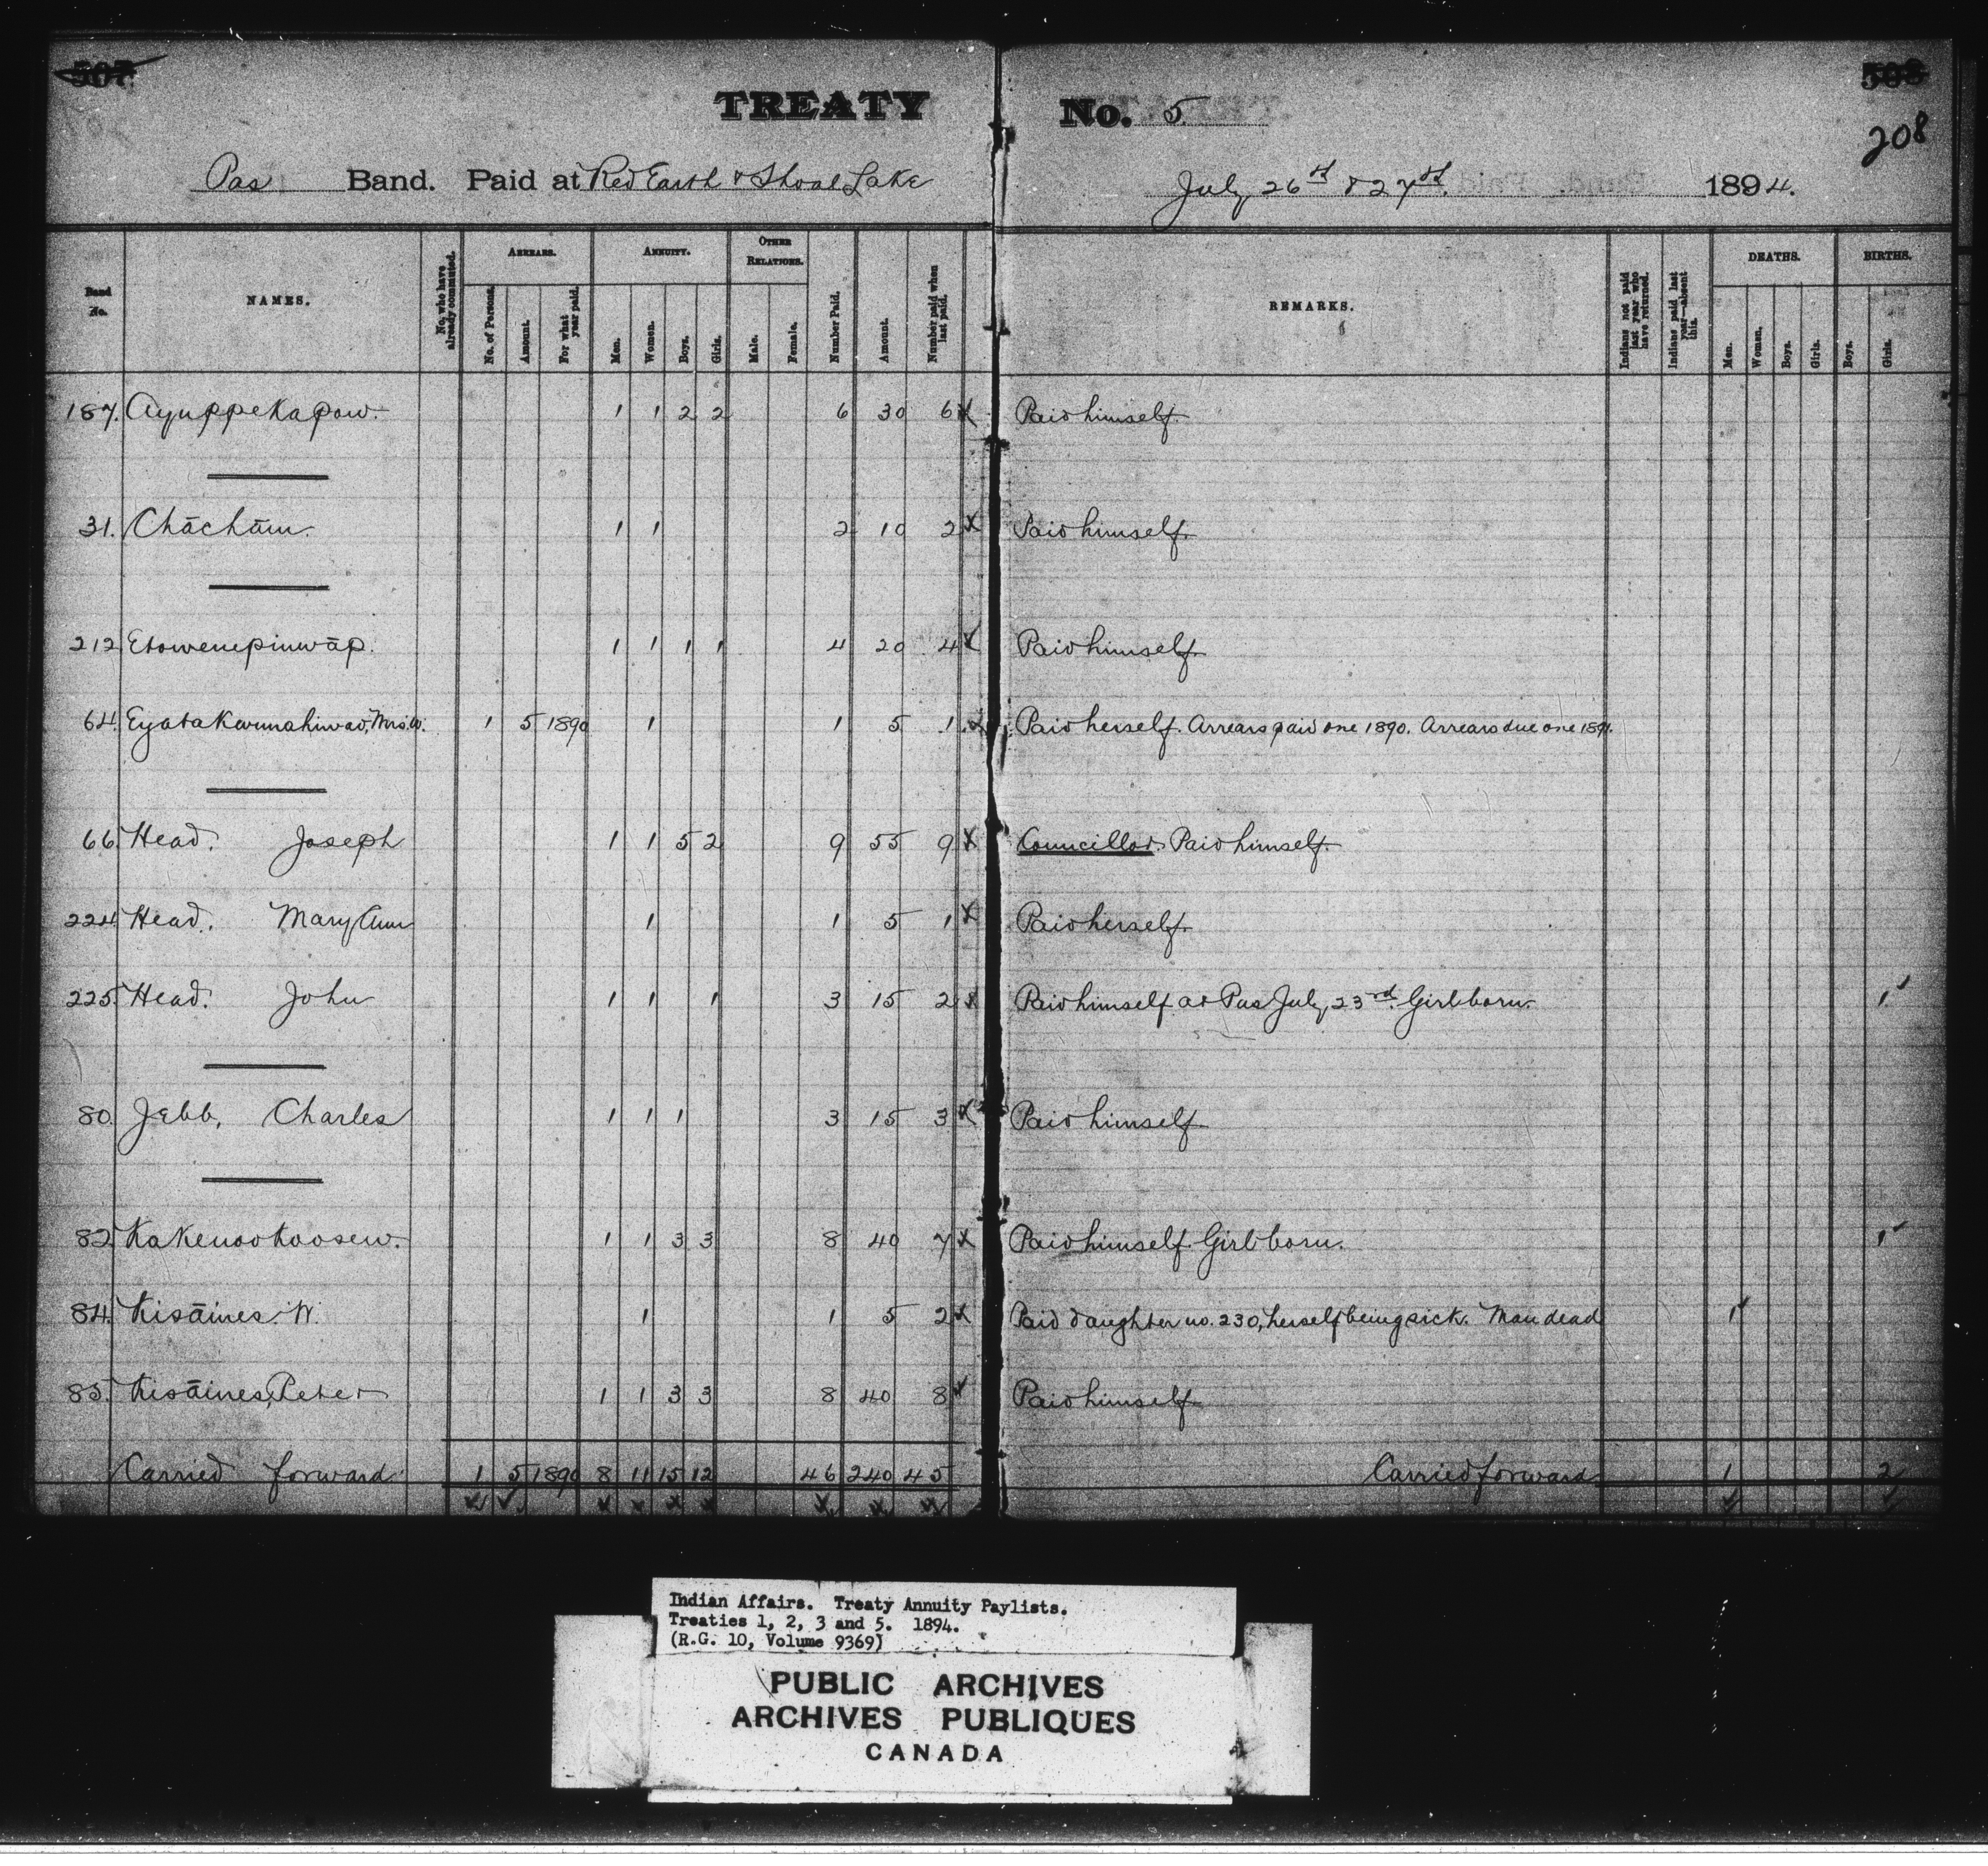 507 508
208
TREATY No. 5
Pas Band. Paid at Red Earth & Shoal Lake July 26th & 27th 1894.
Band No. NAMES. No. who have already commuted. ARREARS. ANNUITY. OTHER RELATIONS. Number Paid. Amount. Number paid when last paid. REMARKS. Indians not paid last year who have returned. Indians paid last year—absent this. DEATHS. BIRTHS.
No. of Persons. Amount. For what year paid. Men. Women. Boys. Girls. Male. Female. Men. Women. Boys. Girls. Boys. Girls.
187. Ayuppekapow. 1 1 2 2 6 30 6 Paid himself.
31. Chāchām. 1 1 2 10 2 Paid himself.
212 Etowenepinwāp. 1 1 1 1 4 20 4 Paid himself.
64. Mrs. W. 1 5 1890 1 1 5 1 Paid herself. Arrears paid one 1890. Arrears due one 1891.
66. Head. Joseph 1 1 5 2 9 55 9 Councillor. Paid himself.
224. Head. Mary Ann 1 1 5 1 Paid herself.
225. Head. John 1 1 1 3 15 2 Paid himself at Pas July 23rd. Girl born. 1
80. Jebb, Charles 1 1 1 3 15 3 Paid himself.
82 Kakenookoosew. 1 1 3 3 8 40 7 Paid himself. Girl born. 1
84. Kisāines W. 1 1 5 2 Paid daughter no. 230, herself being sick. Man dead 1
85. Kisāines, Peter 1 1 3 3 8 40 8 Paid himself.
Carried forward 1 5 1890 8 11 15 12 46 240 45 Carried forward 1 2
Indian Affairs. Treaty Annuity Paylists.
Treaties 1, 2, 3 and 5. 1894.
(R.G. 10, Volume 9369)
PUBLIC ARCHIVES
ARCHIVES PUBLIQUES
CANADA